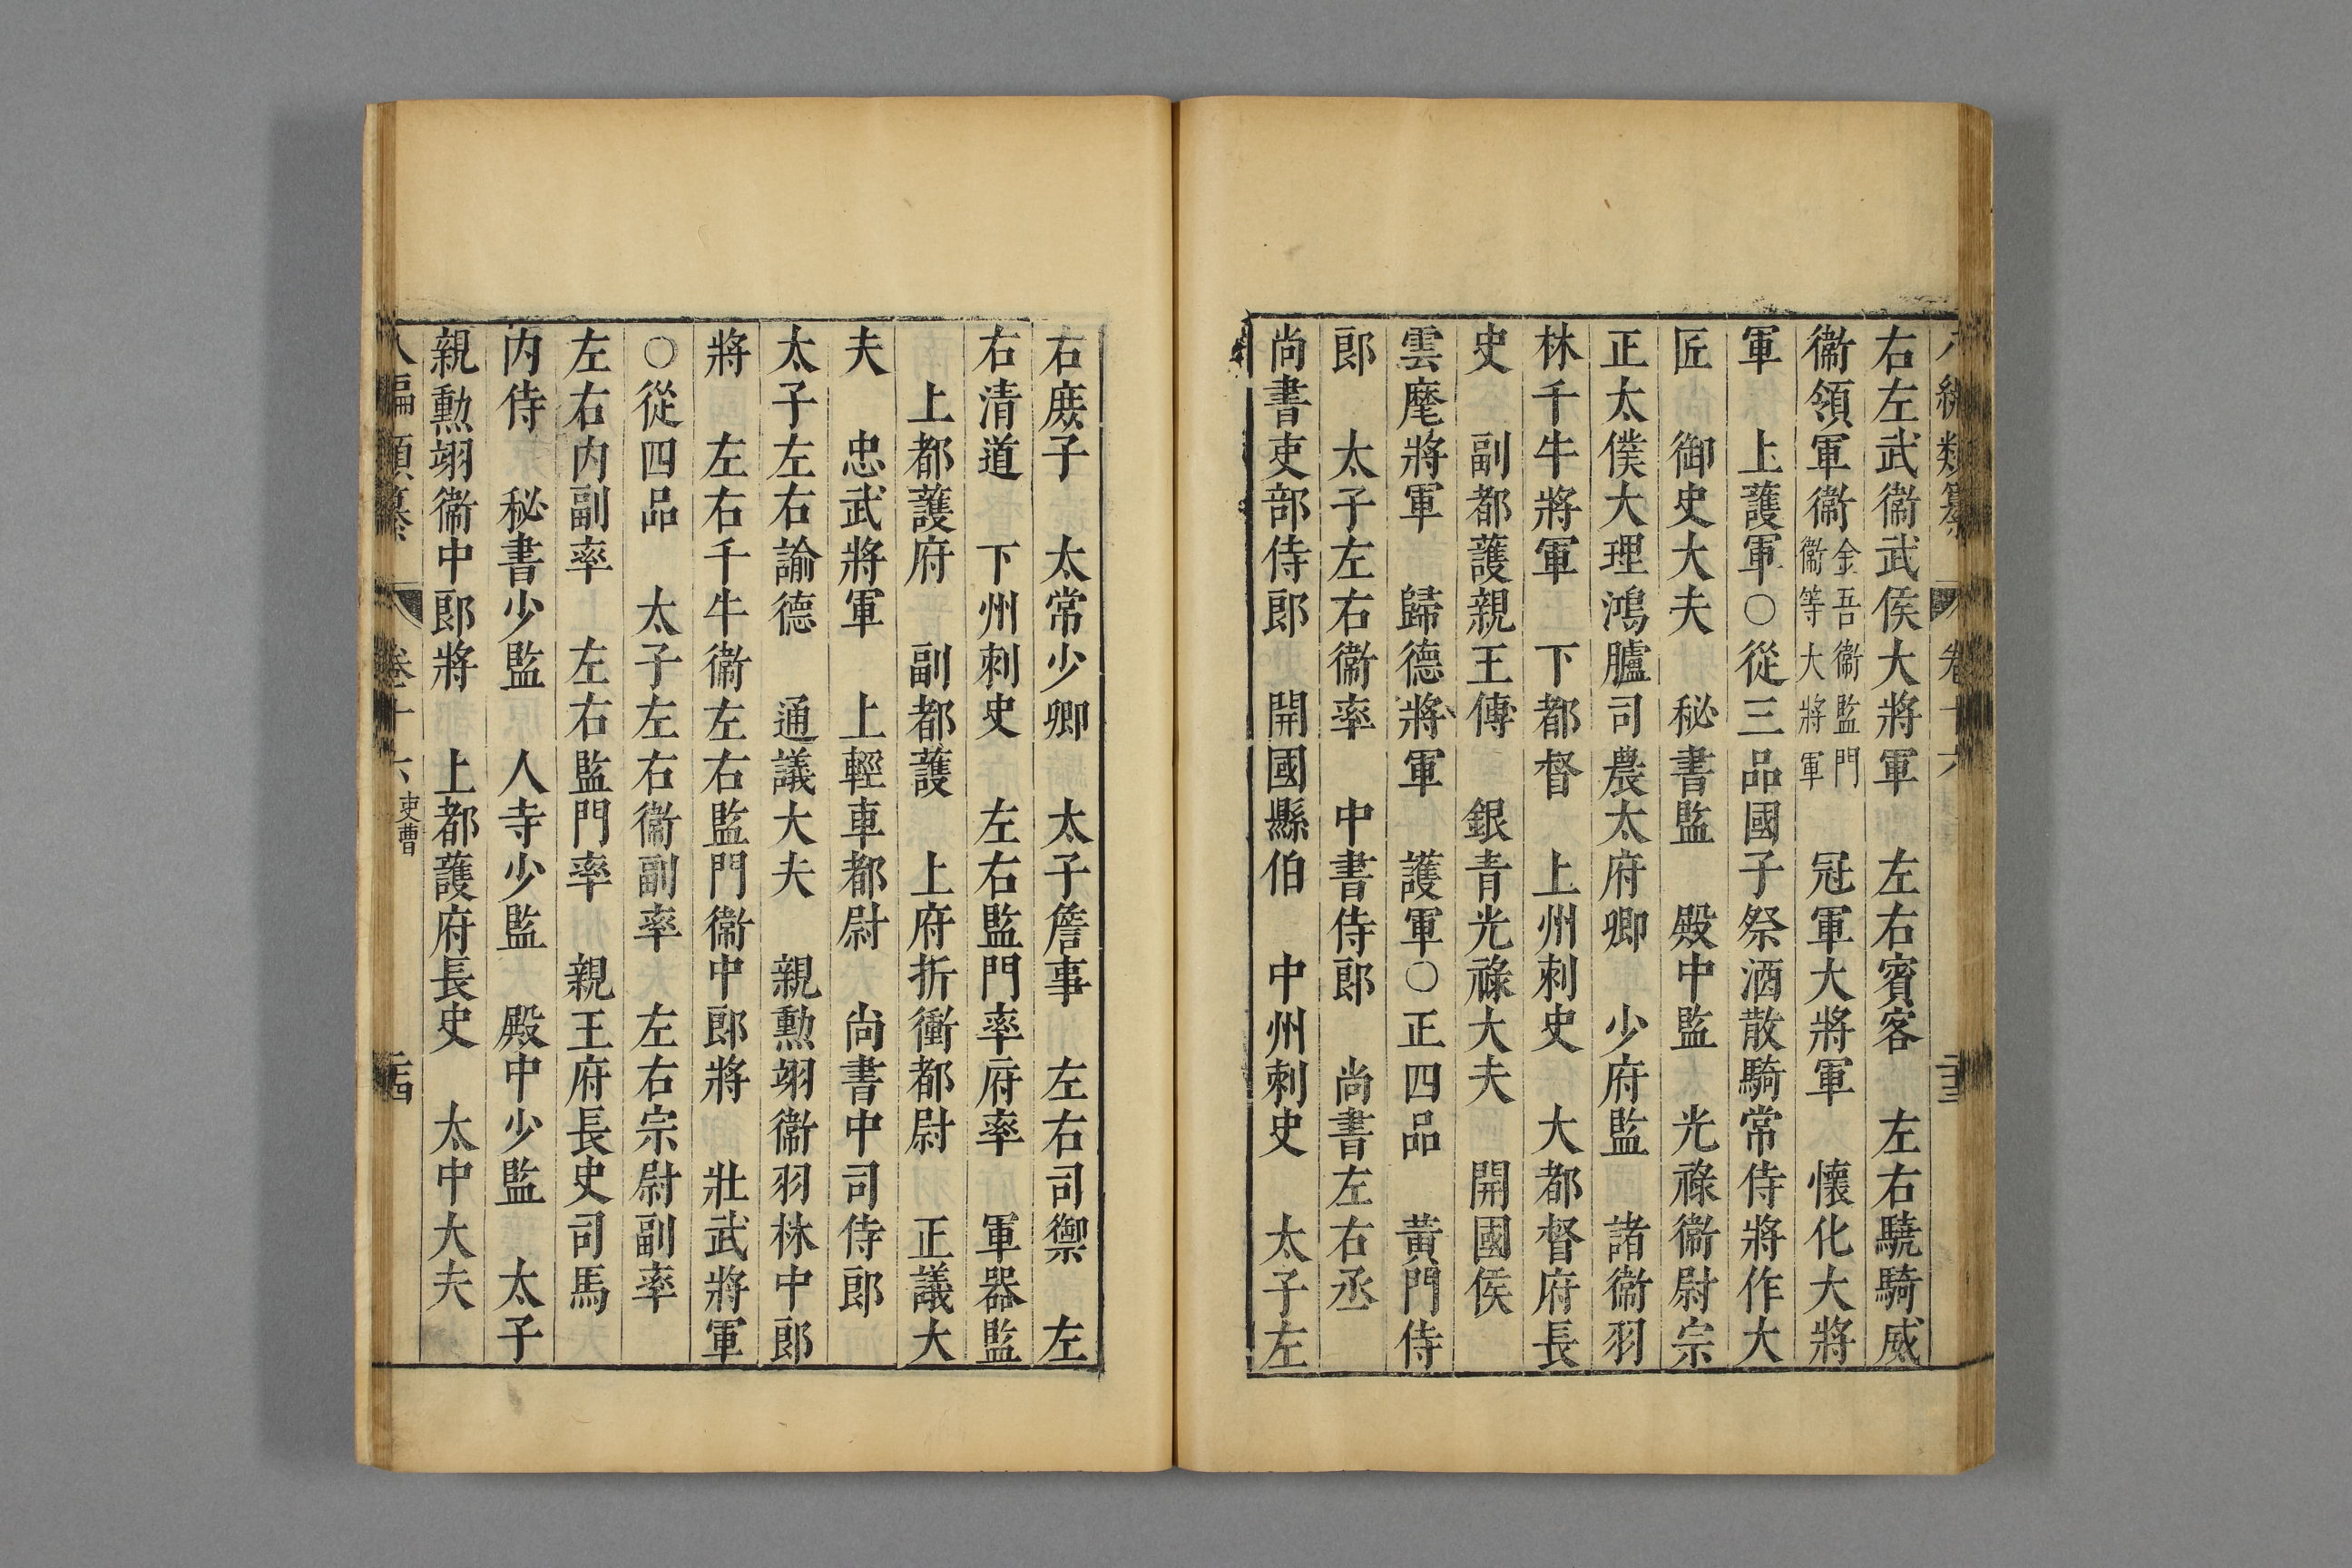 右左武衞武侯大將軍　左右賓客　左右驍騎威
衞領軍衞金吾衞監門衞等大將軍　冠軍大將軍　懷化大將
軍　上護軍○從三品國子祭酒散騎常侍將作大
匠　御史大夫　秘書監　殿中監　光祿衞尉宗
正太僕大理鴻臚司農太府卿　少府監　諸衞羽
林千牛將軍　下都督　上州刺史　大都督府長
史　副都護親王傅　銀青光祿大夫　開國侯
雲麾將軍　歸德將軍　護軍○正四品　黃門侍
郎　太子左右衞率　中書侍郎　尚書左右丞
尚書吏部侍郎　開國縣伯　中州刺史　太子左
右庶子　太常少卿　太子詹事　左右司禦　左
右清道　下州刺史　左右監門率府率　軍器監
上都護府　副都護　上府折衝都尉　正議大
夫　忠武將軍　上輕車都尉　尚書中司侍郎
太子左右諭德　通議大夫　親勳翊衞羽林中郎
將　左右千牛衞左右監門衞中郎將　壯武將軍
○從四品　太子左右衞副率　左右宗尉副率
左右內副率　左右監門率　親王府長史司馬
內侍　秘書少監　人寺少監　殿中少監　太子
親勳翊衞中郎將　上都護府長史　太中大夫
八編類纂　卷十六　吏曹　二十四